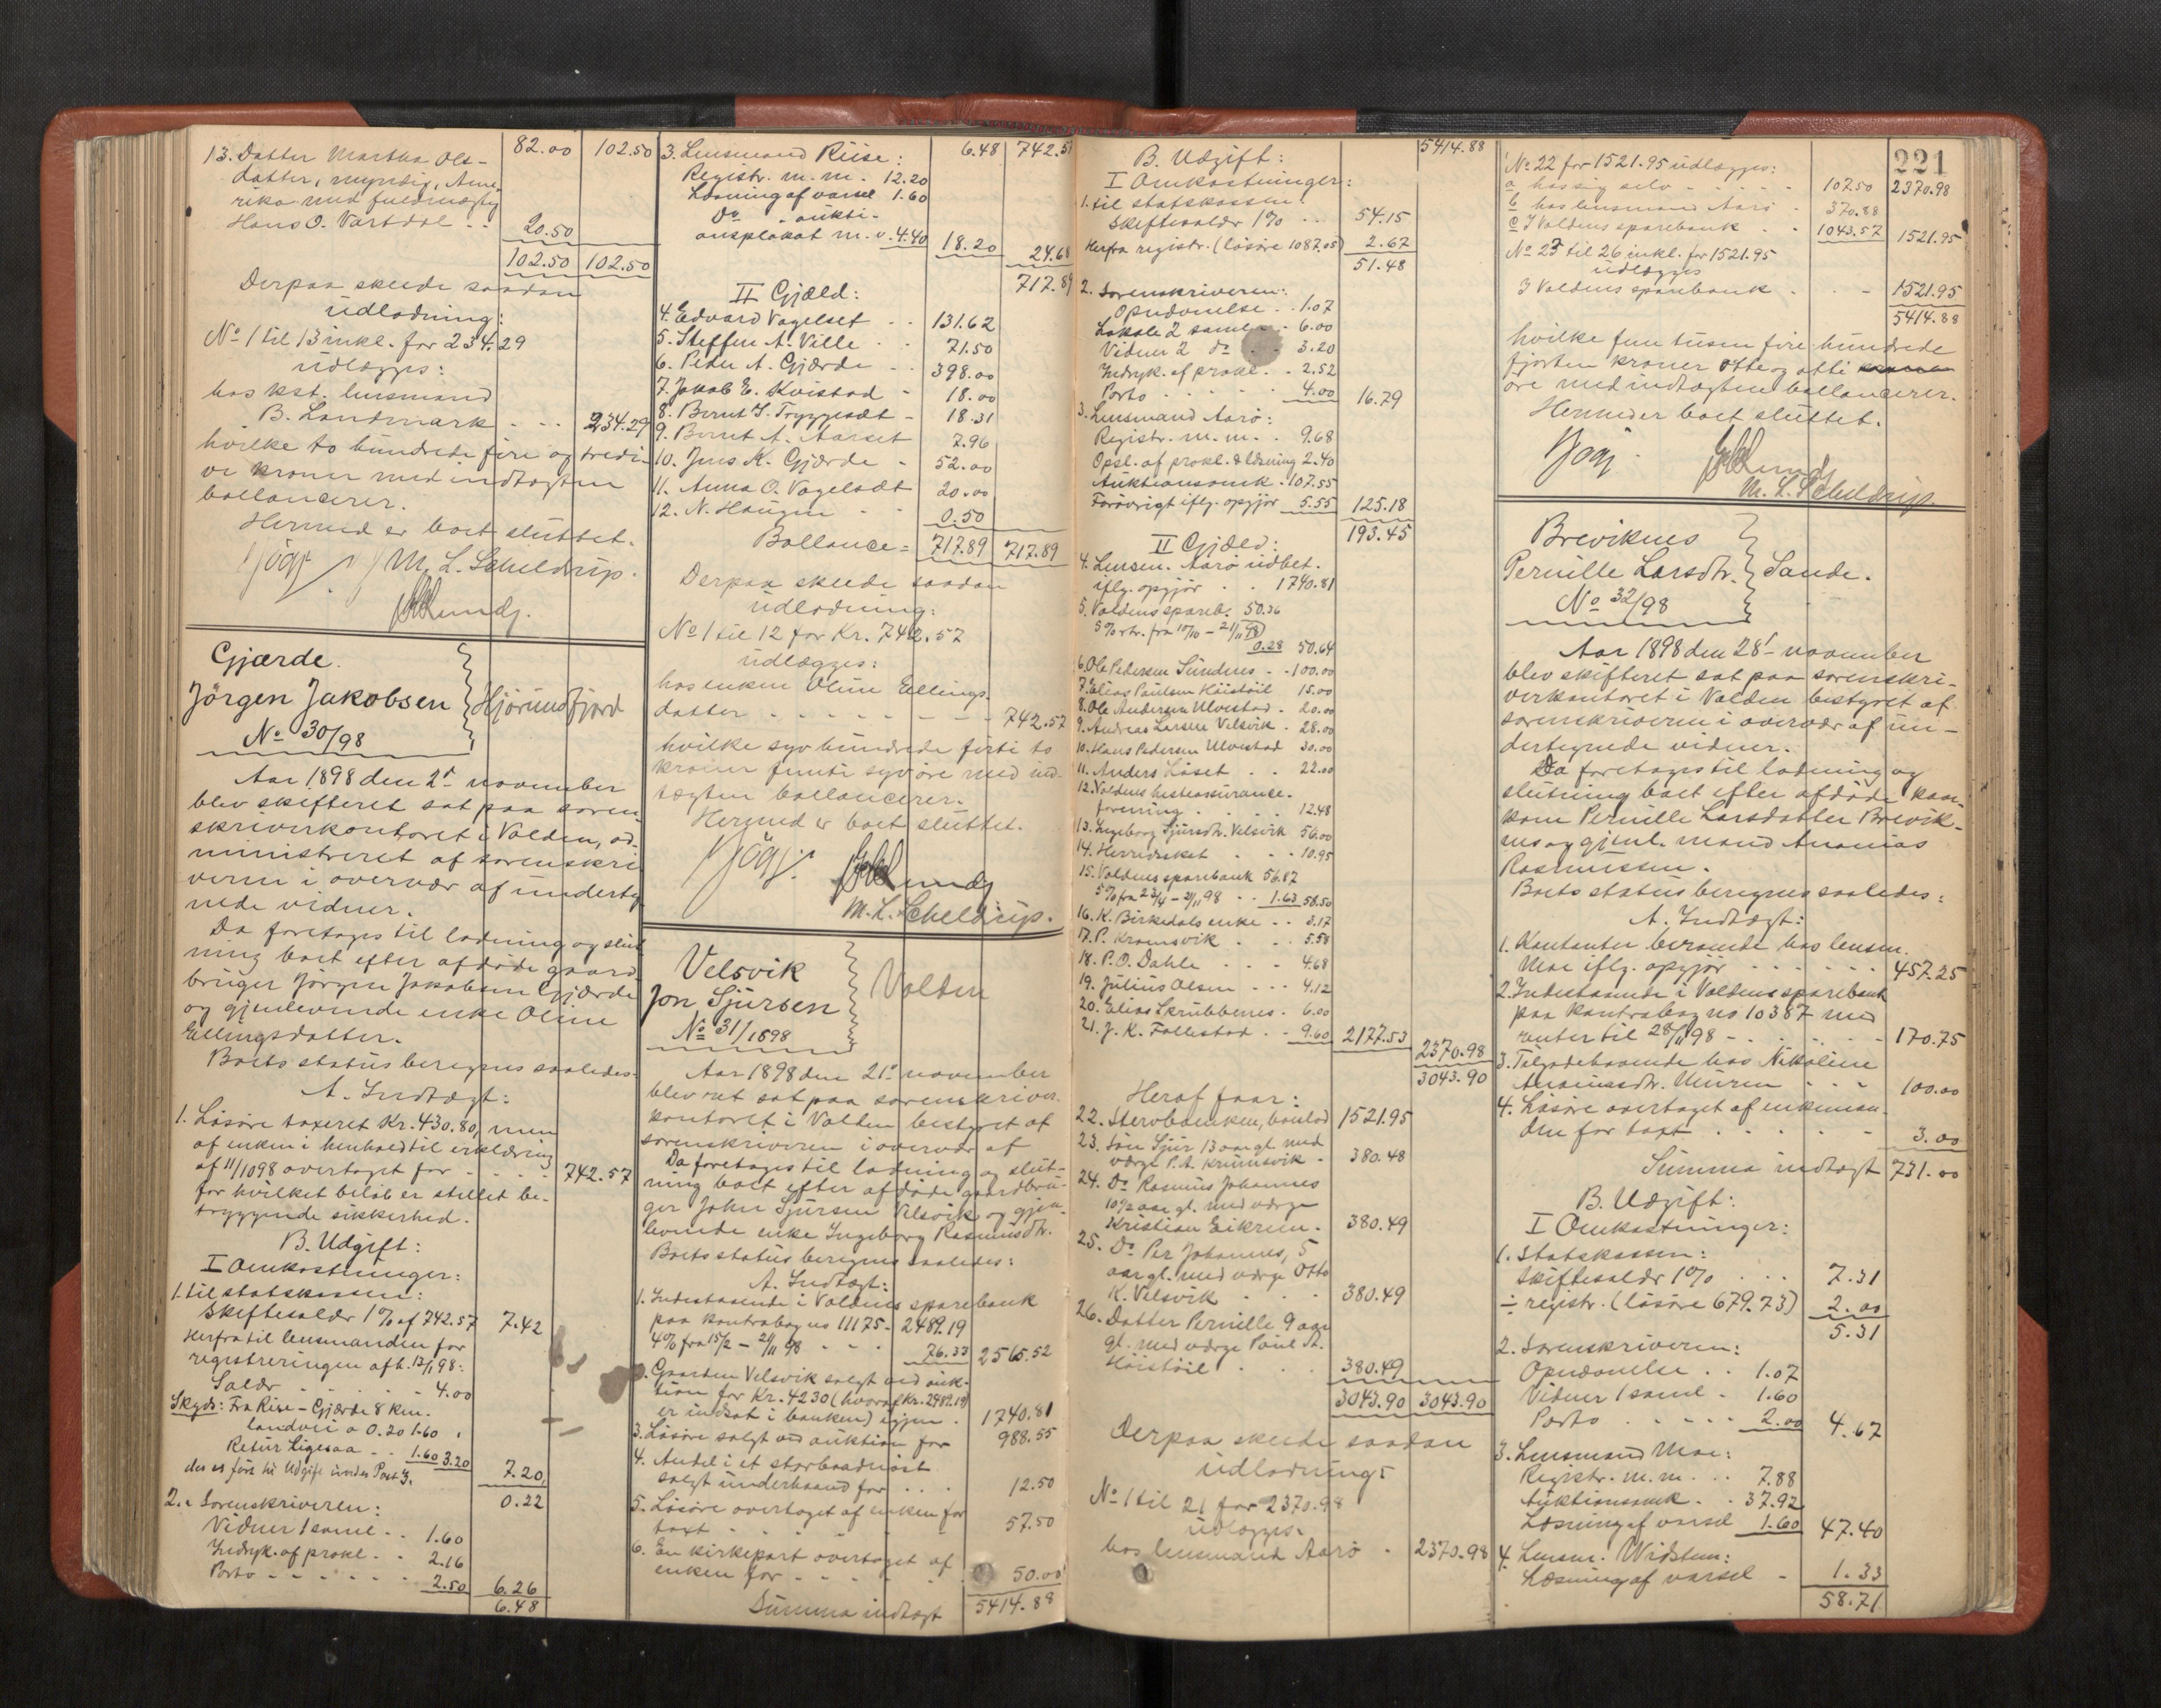 13. Datter Martha Ols- 82.00 102.50
datter, myndig, Ame-
rika med fuldmægtig
Hans O. Vartdal . . 20.50
102.50 102.50
Derpaa skeede saadan
udlodning:
No 1 til 13 inkl. for 234.29
udlægges:
hos kst. lensmand
B. Landmark . . . 234.29
hvilke to hundrede fire og tredi-
ve kroner med indtægten
ballancerer.
Hermed er boet sluttet.
M. L. Scheldrup.
Gjærde.
Jörgen Jakobsen Hjörundfjord
No 30/98
Aar 1898 den 2. november
blev skifteret sat paa soren-
skriverkontoret i Volden, ad-
ministreret af sorenskri
veren i overvær af underteg
nede vidner.
Da foretages til lodning og slut
ning boet efter afdöde gaard
bruger Jörgen Jakobsen Gjærde
og gjenlevende enke Oline
Ellingsdatter.
Boets status beregnes saaledes.
A. Indtægt:
1. Lösöre taxeret Kr. 430.80, men
af enken i henhold til erklæring
af 11/10 98 overtaget for - - - 742.57
for hvilket belöb er stillet be-
tryggende sikkerhed.
B. Udgift:
I Omkostninger:
1. til statskassen:
Skiftesalær 1% af 742.57 7.42
Herfra til lensmanden for
registreringen afh. 13/1 98:
Salær . . . . . 4.00
Skyds: Fra Rise - Gjærde 8 km.
landvei a 0.20 1.60
Retur Ligesaa . . 1.60 3.20
7.20
0.22
2. Sorenskriveren:
Vidner 1 saml. . . 1.60
Indryk. af prokl. . . 2.16
Porto - - - - - - 2.50 6.26
6.48
3. Lensmand Riise: 6.48 742.57
Registr. m. m. 12.20
Læsning af varsel 1.60
Do - aukti-
onsplakat m. v. 4.40 18.20 24.68
717.89
II Gjæld:
4. Edvard Vagelset . . 131.62
5. Steffen A. Ville . . 71.50
6. Peder A. Gjærde . . 398.00
7. Jakob E. Kvistad - 18.00
8. Bernt J. Tryggesæt - 18.31
9. Bernt A. Aarset 7.96
10. Jens K. Gjærde - 52.00
11. Anna O. Vagelsæt 20.00
12. N. Haugen - - 0.50
Ballance = 717.89 717.89
Derpaa skeede saadan
udlodning:
No 1 til 12 for Kr. 742.57
udlægges:
hos enken Oline Ellings-
datter - - - - - - - - 742.57
hvilke syv hundrede firti to
kroner femti syv öre med ind-
tægten ballancerer.
Hermed er boet sluttet.
M. L. Scheldrup.
Velsvik
Jon Sjursen Volden
No 31/1898
Aar 1898 den 21. november
blev ret sat paa sorenskriver-
kontoret i Volden bestyret af
sorenskriveren i overvær af
Da foretages til lodning og slut-
ning boet efter afdöde gaardbru-
ger John Sjursen Velsvik og gjen-
levende enke Ingeborg Rasmusdtr.
Boets status beregnes saaledes:
A. Indtægt:
1. Indestaaende i Voldens sparebank
paa kontrabog no 11175 - 2489.19
4% fra 15/2 - 21/11 98 - - - 76.33 2565.52
2. Gaarden Velsvik solgt ved auk-
tion for Kr. 4230 (hvoraf Kr. 2489.19
er indsat i banken) igjen . 1740.81
3. Lösöre solgt ved auktion for 988.55
4. Andel i et storbaadnöst
solgt underhaand for . . . 12.50
5. Lösöre overtaget af enken for
taxt - - - - - - 57.50
6. En kirkepart overtaget af
enken for - - - - 50.00
Summa indtægt 5414.88
B. Udgift: 5414.88
I Omkostninger:
1. til statskassen:
Skiftesalær 1% . . 54.15
Herfra registr. (lösöre 1087.05) 2.67
51.48
2. Sorenskriveren:
Opnævnelse . . 1.07
Lokale 2 saml. - 6.00
Vidner 2 do . . 3.20
Indryk. af prokl. . . 2.52
Porto . . . . . 4.00 16.79
3. Lensmand Aarö:
Registr. m. m. . 9.68
Opsl. af prokl. & læsning 2.40
Auktionsomk. . 107.55
Foröwrigt iflg. opgjör 5.55 125.18
193.45
II Gjæld:
4. Lensm. Aarö udbet.
iflg. opgjör . . 1740.81
5. Voldens spareb. 50.36
5% rtr. fra 10/10 - 21/11 98
0.28 50.64
6. Ole Pedersen Sundnes - - 100.00
7. Elias Paulsen Höistöil 15.00
8. Ole Andersen Ulvestad . 20.00
9. Andreas Larsen Velsvik . 28.00
10. Hans Pedersen Ulvestad 30.00
11. Anders Löset . . 22.00
12. Voldens hesteassurance-
forening . . . . 12.48
13. Ingeborg Sjursdtr. Velsvik 56.00
14. Herredsket - - - 10.95
15. Voldens sparebank 56.87
5% fra 23/4 - 21/11 98 . . 1.63 58.50
16. K. Birkedals enke . . 3.17
17. P. Kromsvik . . . 5.58
18. P. O. Dahle - - - 4.68
19. Julius Olsen - - - 4.12
20. Elias Skrubbenes . 6.00
21. J. K. Follestad . - 9.60 2177.53
2370.98
3043.90
Heraf faar:
22. Stervboenken, boislod 1521.95
23. Sön Sjur 13 aar gl. med
værge P. A. Krumsvik - 380.48
24. Do Rasmus Johannes
10 1/2 aar gl. med værge
Kristian Eikrem . 380.49
25. Do Per Johannes, 5
aar gl. med værge Otto
K. Velsvik - - - 380.49
26. Datter Pernille 9 aar
gl. med værge Paul A.
Höistöil . . . 380.49
3043.90 3043.90
Derpaa skeede saadan
udlodning:
No 1 til 21 for 2370.98
udlægges.
hos lensmand Aarö . 2370.98
221
No 22 for 1521.95 udlægges:
a hos sig selv - - - - - 107.50 2370.98
b hos lensmand Aarö . 370.88
c I Voldens sparebank . . 1043.57 1521.95
No 23 til 26 inkl. for 1521.95
udlægges
I Voldens sparebank . - - 1521.95
5414.88
hvilke fem tusen fire hundrede
fjorten kroner otte og otti
öre med indtægten ballancerer.
Hermed er boet sluttet.
M. L. Scheldrup.
Breviknes
Pernille Larsdtr. Sande.
No 32/98
Aar 1898 den 28. november
blev skifteret sat paa sorenskri-
verkontoret i Volden bestyret af
sorenskriveren i overvær af un-
dertegnede vidner.
Da foretages til lodning og
slutning boet efter afdöde kaar-
kone Pernille Larsdatter Brevik-
nes og gjenl. mand Ananias
Rasmussen.
Boets status beregnes saaledes:
A. Indtægt:
1. Kontanter beroende hos lensm.
Moe iflg. opgjör - - - - - 457.25
2. Indestaaende i Voldens sparebank
paa kontrabog no 10387 med
renter til 28/11 98 - . . - - 170.75
3. Tilgodehavende hos Nikoline
Ananiasdtr. Muren - - - 100.00
4. Lösöre overtaget af enkeman-
den for taxt . . . . - 3.00
Summa indtægt 731.00
B. Udgift:
I Omkostninger:
1. Statskassen:
Skiftesalær 1% . . . 7.31
÷ registr. (lösöre 679.73) 2.00
5.31
2. Sorenskriveren:
Opnævnelse . . 1.07
Vidner 1 saml . 1.60
Porto . - - - - 2.00 4.67
3. Lensmand Moe:
Registr. m. m. . . 7.88
Auktionsomk. . . 37.92
Læsning af varsel 1.60 47.40
4. Lensm. Widsten:
Læsning af varsel - 1.33
58.71